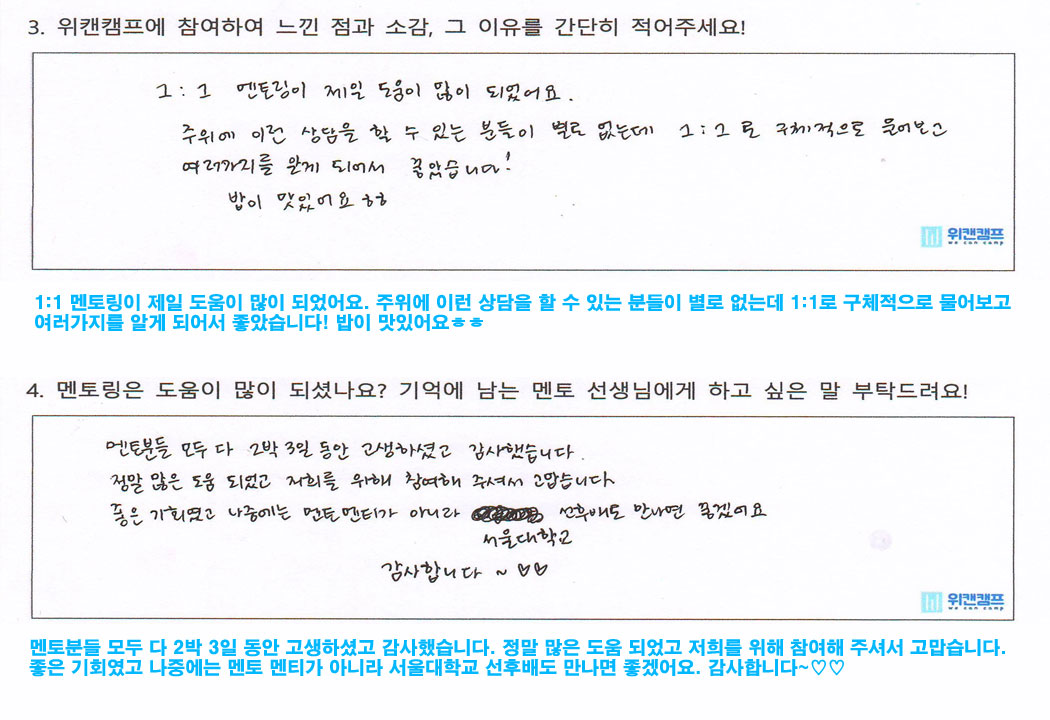 3. 위캔캠프에 참여하여 느낀 점과 소감, 그 이유를 간단히 적어주세요!
1:1 멘토링이 제일 도움이 많이 되었어요.
주위에 이런 상담을 할 수 있는 분들이 별로 없는데 1:1로 구체적으로 물어보고
여러가지를 알게 되어서 좋았습니다!
밥이 맛있어요 ㅎㅎ
위캔캠프
we can camp
1:1 멘토링이 제일 도움이 많이 되었어요. 주위에 이런 상담을 할 수 있는 분들이 별로 없는데 1:1로 구체적으로 물어보고
여러가지를 알게 되어서 좋았습니다! 밥이 맛있어요ㅎㅎ
4. 멘토링은 도움이 많이 되셨나요? 기억에 남는 멘토 선생님에게 하고 싶은 말 부탁드려요!
멘토분들 모두 다 2박 3일 동안 고생하셨고 감사했습니다.
정말 많은 도움 되었고 저희를 위해 참여해 주셔서 고맙습니다
좋은 기회였고 나중에는 멘토멘티가 아니라 선후배도 만나면 좋겠어요
서울대학교
감사합니다 ~ ♡♡
위캔캠프
we can camp
멘토분들 모두 다 2박 3일 동안 고생하셨고 감사했습니다. 정말 많은 도움 되었고 저희를 위해 참여해 주셔서 고맙습니다.
좋은 기회였고 나중에는 멘토 멘티가 아니라 서울대학교 선후배도 만나면 좋겠어요. 감사합니다~♡♡